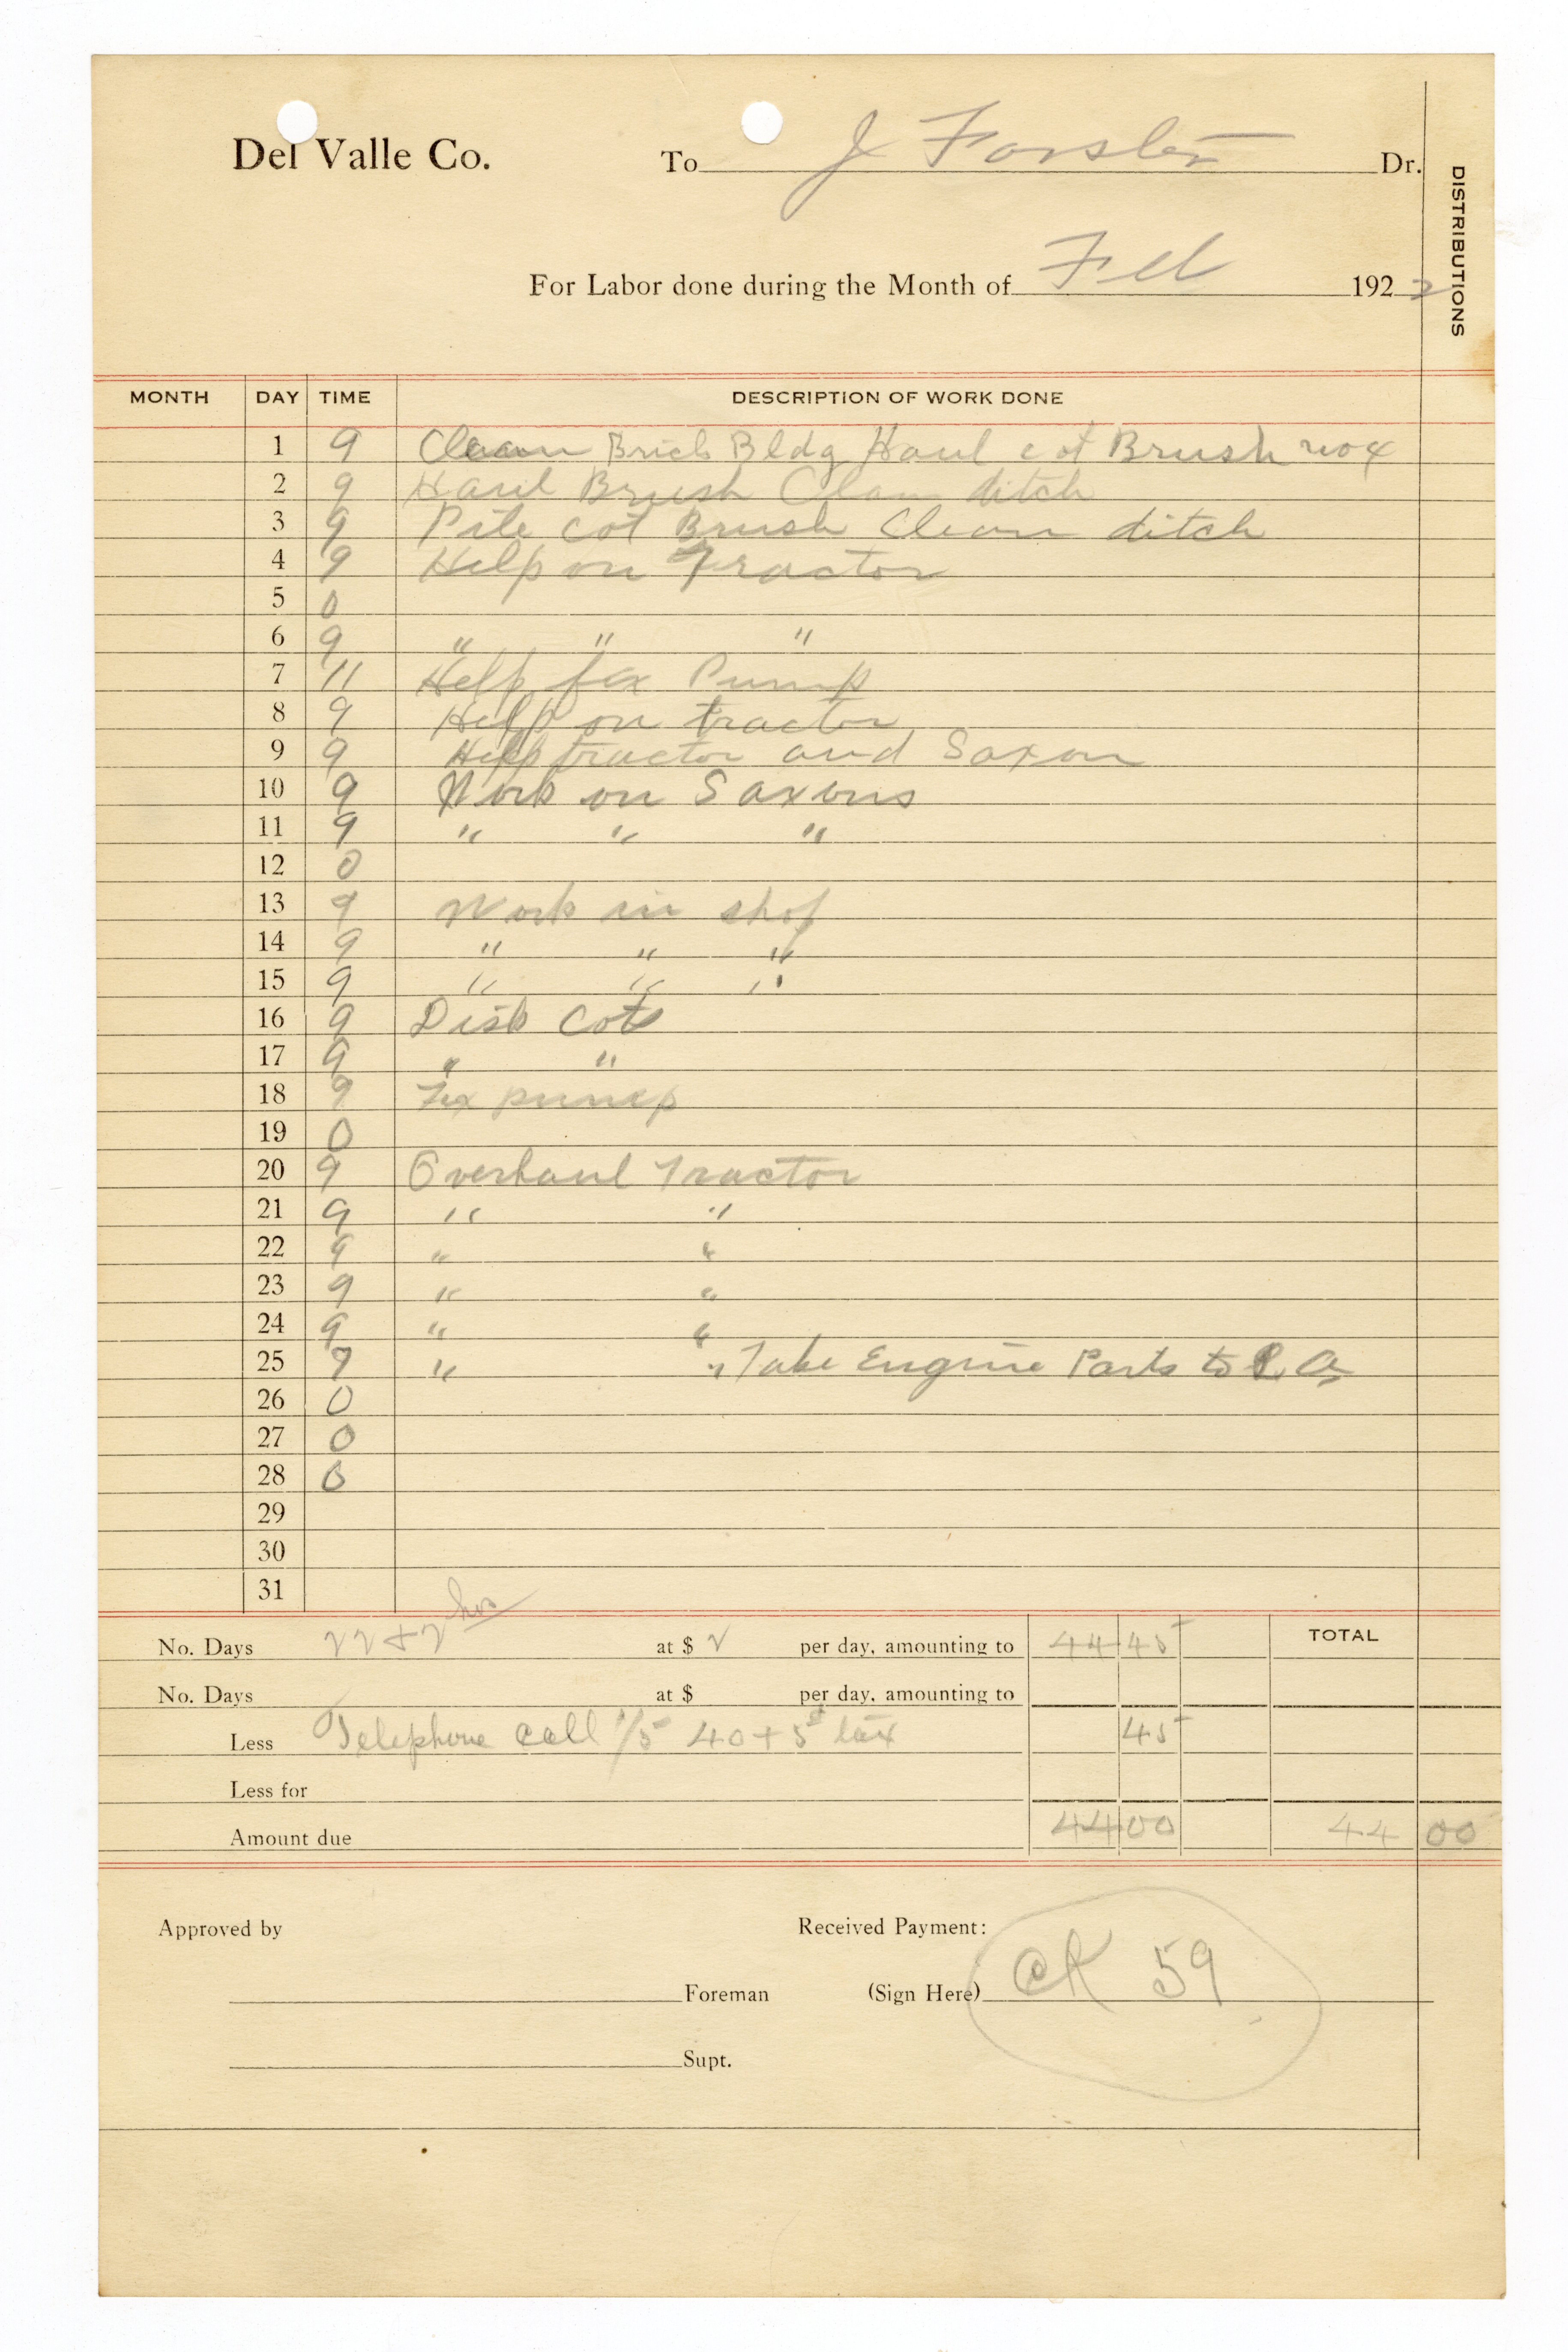 Del Valle Co. To J Forster Dr.
DISTRIBUTIONS
For Labor done during the Month of Feb 1922
MONTH DAY TIME DESCRIPTION OF WORK DONE
1 9 Clean Brick Bldg Haul cot Brush no 4
2 9 Haul Brush Clean ditch
3 9 Pile cot Brush Clean ditch
4 9 Help on Tractor
5 0
6 9 " " "
7 11 Help fix Pump
8 9 Help on tractor
9 9 Help tractor and Saxon
10 9 Work on Saxons
11 9 " " "
12 0
13 9 Work in shop
14 9 " " "
15 9 " " "
16 9 Disk Cots
17 9 " "
18 9 Fix pump
19 0
20 9 Overhaul Tractor
21 9 " "
22 9 " "
23 9 " "
24 9 " "
25 9 " " Take Engine Parts to L A
26 0
27 0
28 0
29
30
31
No. Days 22 + 2 hrs at $ 2 per day, amounting to 44 45 TOTAL
No. Days at $ per day, amounting to
Less Telephone call 1/5 40 + 5¢ tax 45
Less for
Amount due 44 00 44 00
Approved by Received Payment:
Foreman (Sign Here) CK 59
Supt.